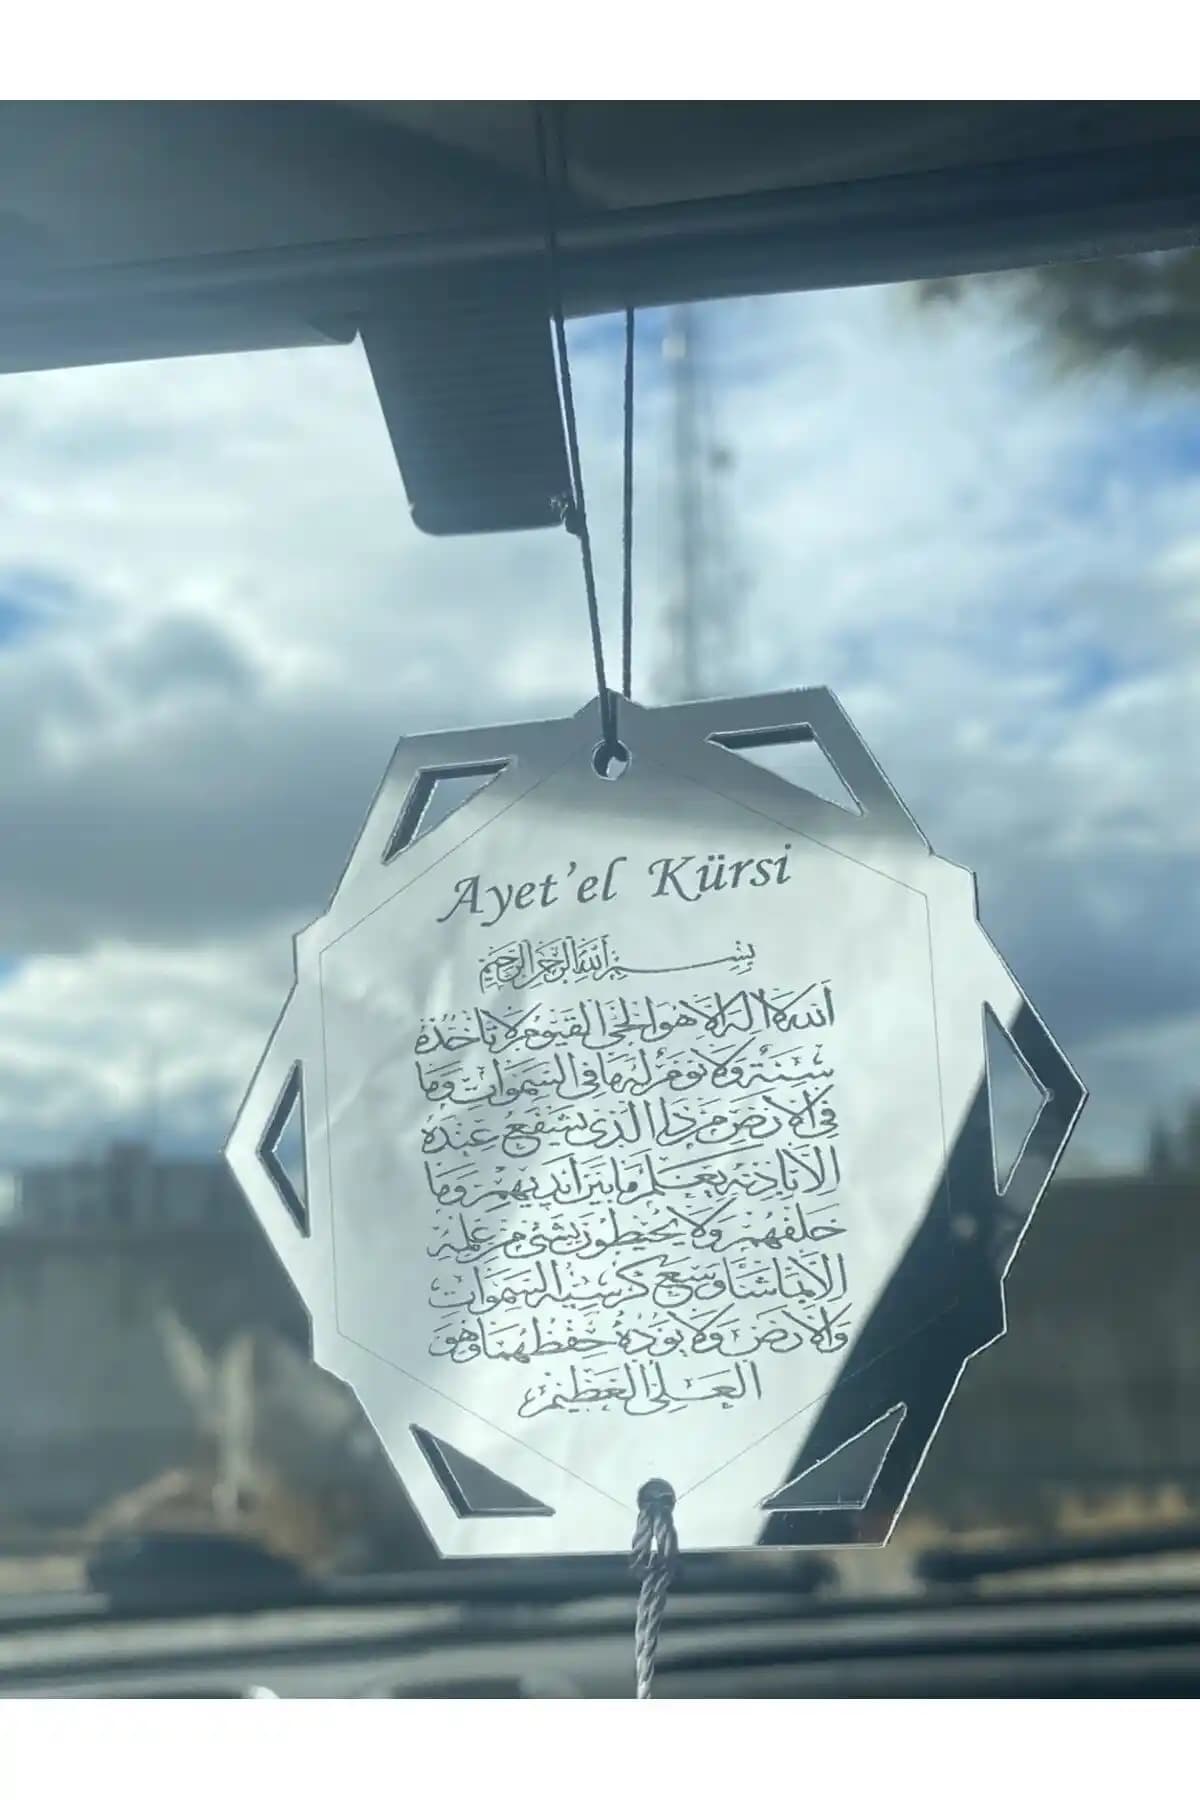 Ayet'el Kürsi
بسم الله الرحمن الرحيم
الله لا اله الا هو الحي القيوم لا تأخذه
سنة ولا نوم له ما في السموات وما
في الارض من ذا الذي يشفع عنده
الا باذنه يعلم ما بين ايديهم وما
خلفهم ولا يحيطون بشئ من علمه
الا بما شاء وسع كرسيه السموات
والارض ولا يؤده حفظهما وهو
العلي العظيم